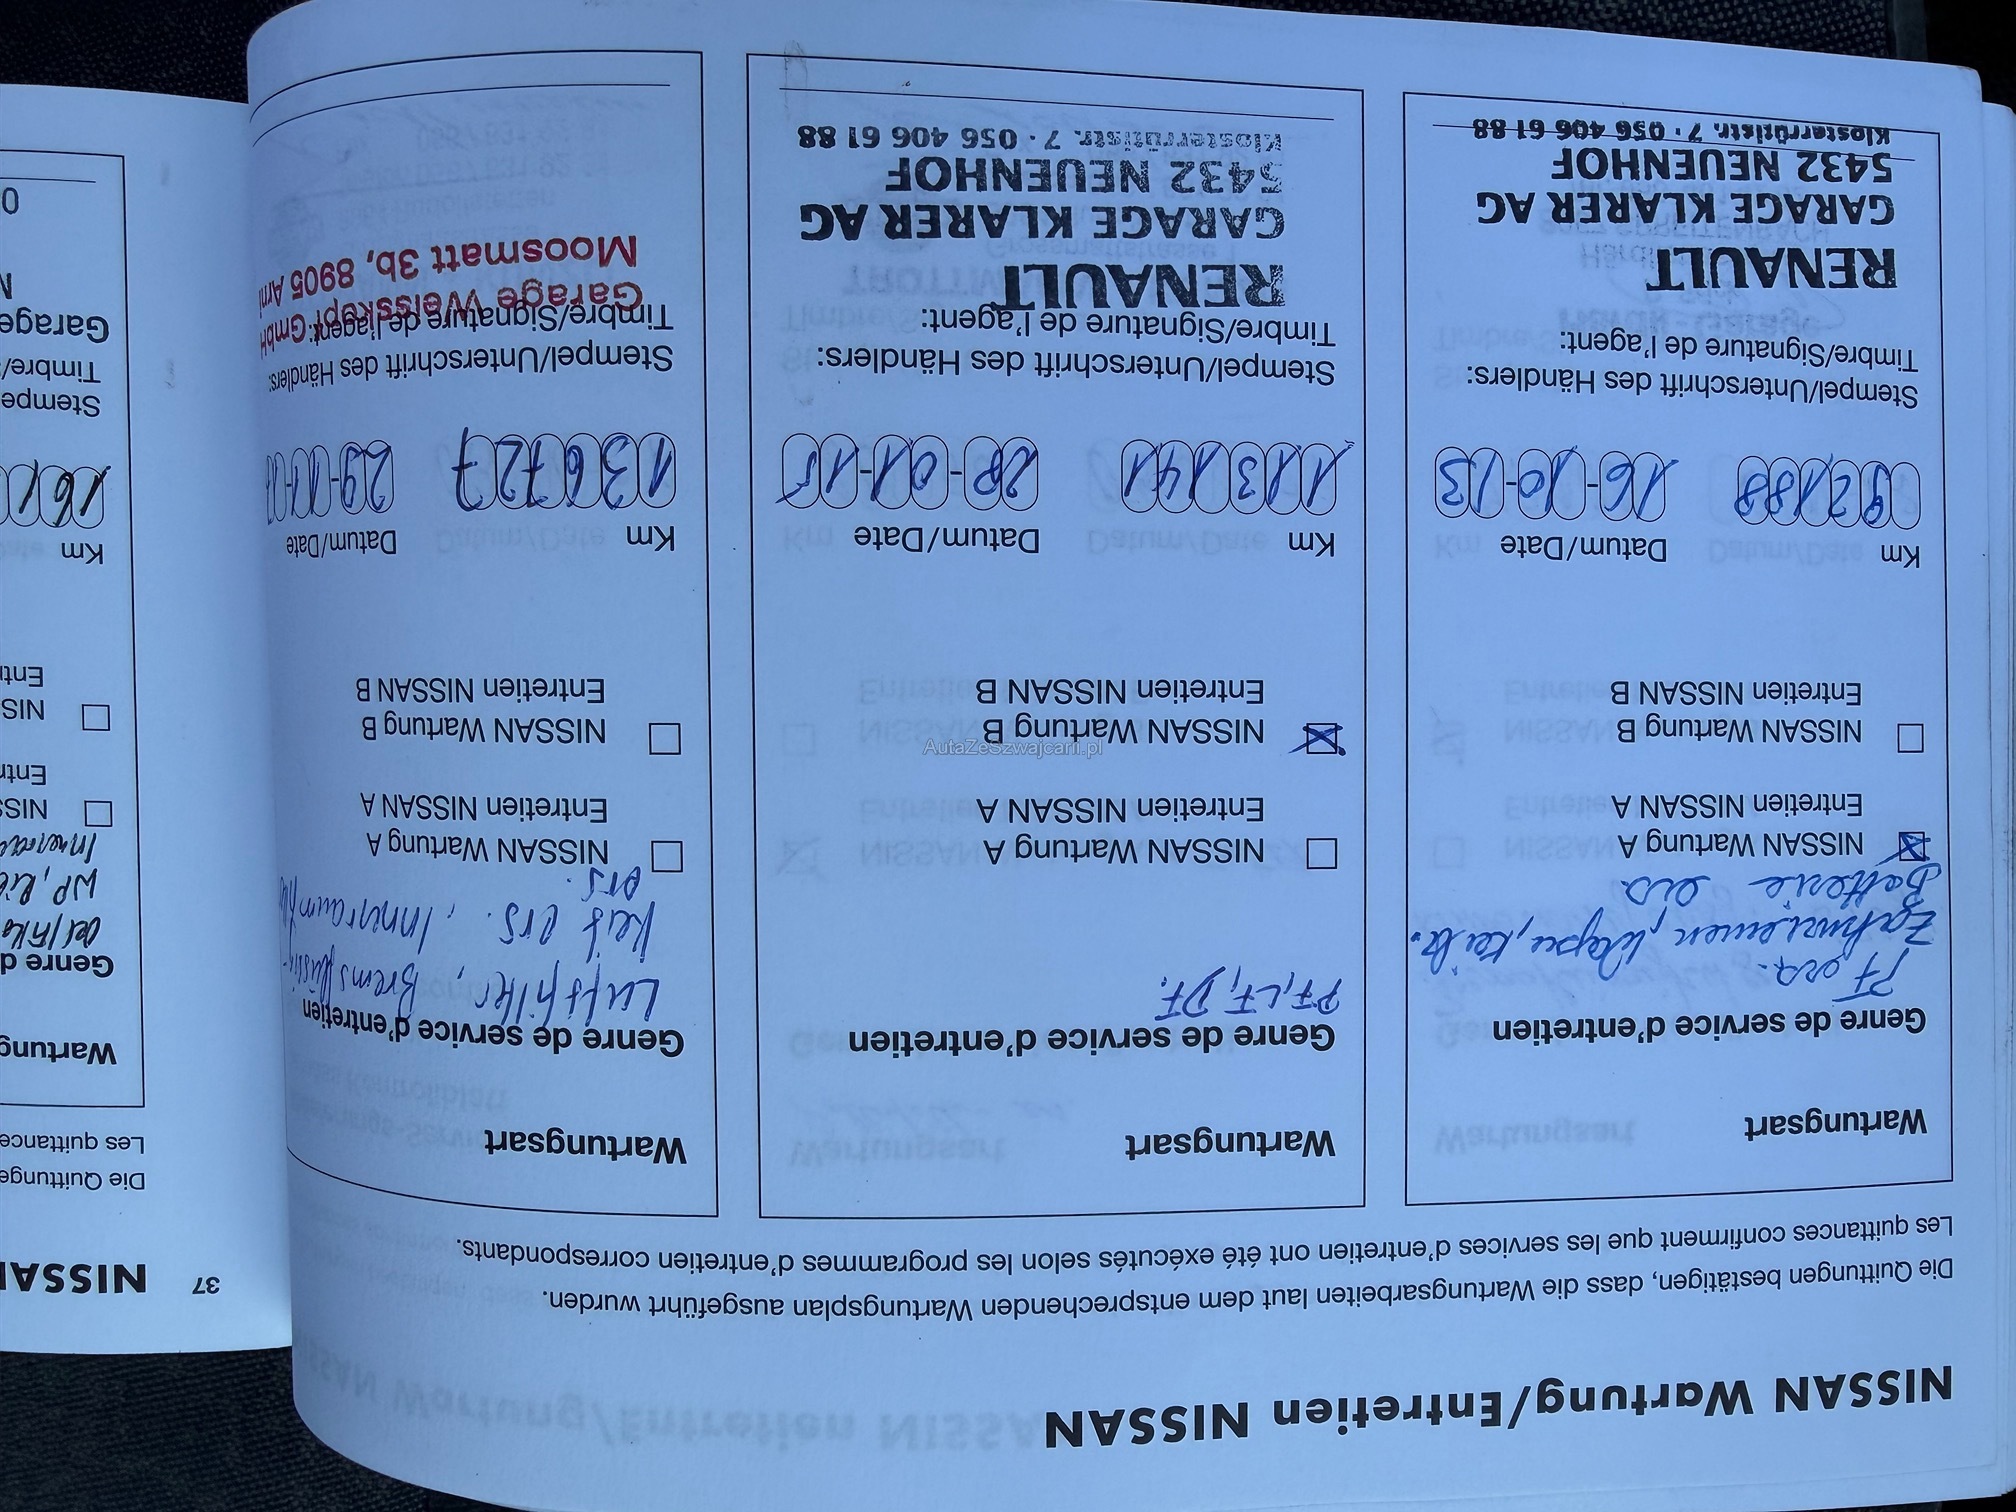 NISSAN Wartung/Entretien NISSAN
Die Quittungen bestätigen, dass die Wartungsarbeiten laut dem entsprechenden Wartungsplan ausgeführt wurden.
Les quittances confirment que les services d'entretien ont été exécutés selon les programmes d'entretien correspondants.
Wartungsart
Genre de service d'entretien
PF ers.
Zahnriemen,
Batterie ers
NISSAN Wartung A
Entretien NISSAN A
NISSAN Wartung B
Entretien NISSAN B
Km Datum/Date
92188 16-10-13
Stempel/Unterschrift des Händlers:
Timbre/Signature de l'agent:
RENAULT
GARAGE KLARER AG
5432 NEUENHOF
Klosterrütistr. 7 · 056 406 61 88
Wartungsart
Genre de service d'entretien
PF, LF, DF.
NISSAN Wartung A
Entretien NISSAN A
NISSAN Wartung B
Entretien NISSAN B
Km Datum/Date
113141 28-01-15
Stempel/Unterschrift des Händlers:
Timbre/Signature de l'agent:
RENAULT
GARAGE KLARER AG
5432 NEUENHOF
Klosterrütistr. 7 · 056 406 61 88
Wartungsart
Genre de service d'entretien
Luftfilter, Bremsflüssig-
keit ers., Innenraumfilter
ers.
NISSAN Wartung A
Entretien NISSAN A
NISSAN Wartung B
Entretien NISSAN B
Km Datum/Date
136727 29-11-
Stempel/Unterschrift des Händlers:
Timbre/Signature de l'agent:
Garage Weisskopf GmbH
Moosmatt 3b, 8905 Arni
37
NISSA
Die Quittunge
Les quittance
Wartung
Genre d
NIS
Entr
NIS
Entr
Km
161
Stempe
Timbre/
Garage
AutaZeSzwajcarii.pl